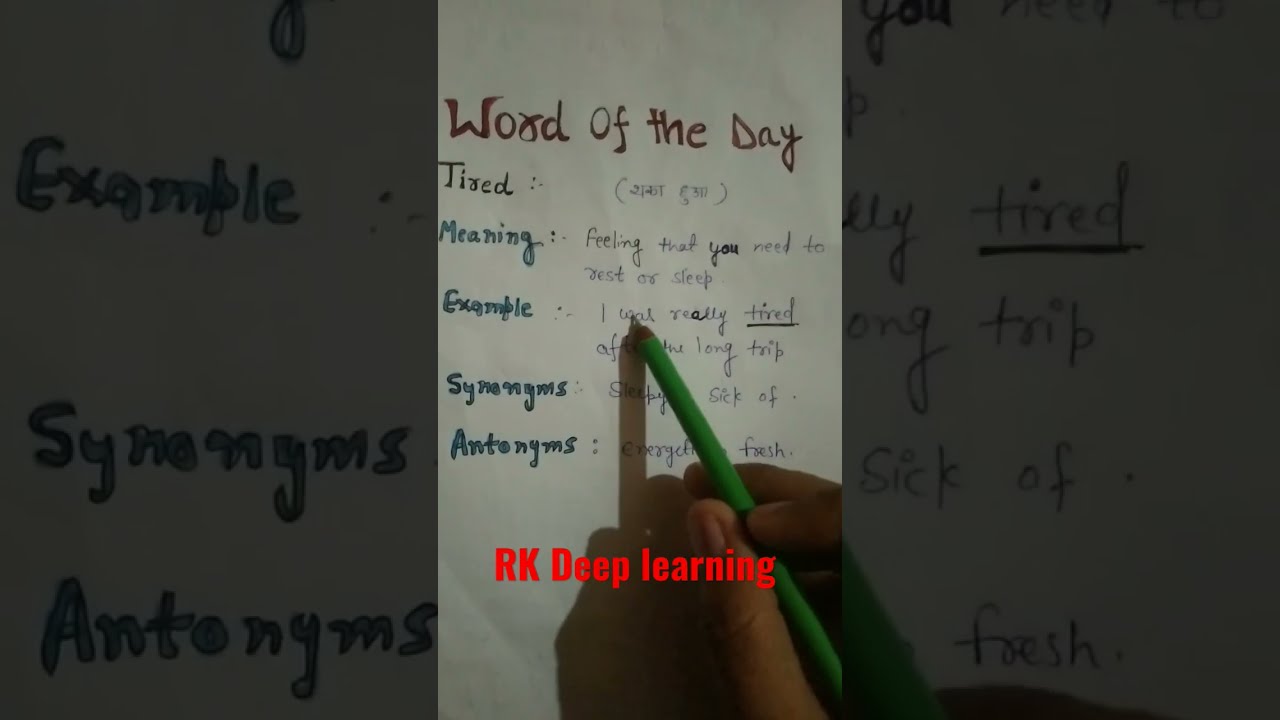 Word Of the Day
Tired :- (थका हुआ)
Meaning :- Feeling that you need to
rest or sleep.
Example :- I was really tired
after the long trip
Synonyms :- Sleepy, Sick of .
Antonyms : energetic, fresh.
RK Deep learning